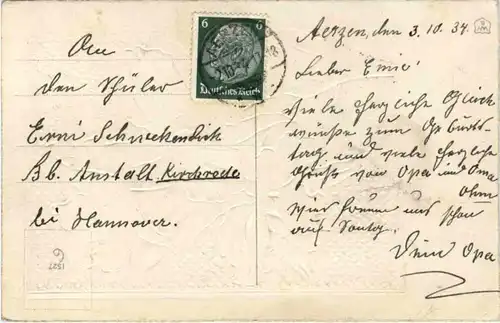 An
den Schüler
Erni Schneckendick
Bb. Anstalt Kirchrode
bei Hannover.
6 6
Deutsches Reich
Aerzen, den 3.10.34.
Lieber Erni!
Viele herzliche Glück
wünsche zum Geburts-
tag und viele herzliche
Grüße von Opa und Oma
Wir freuen uns schon
auf Sontag.
Dein Opa
1527
6